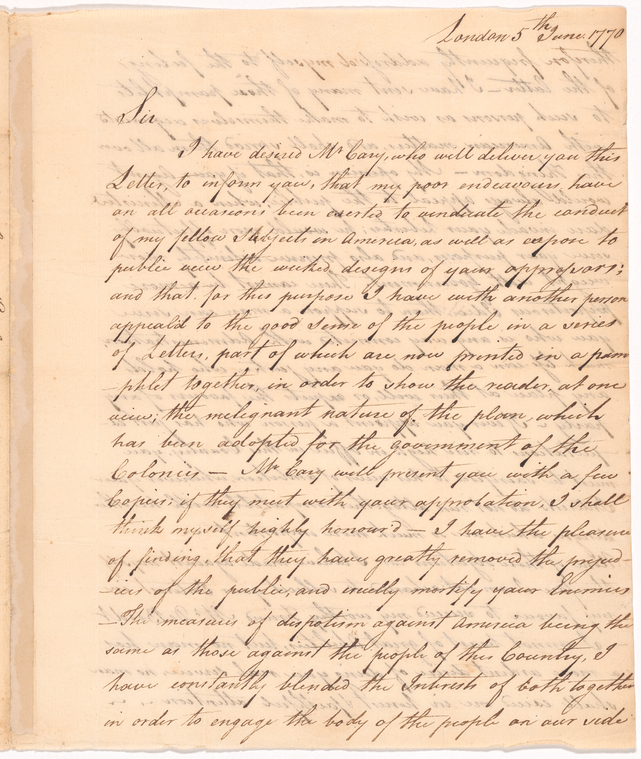 London 5th June 1770
Sir
I have desired Mr Cary, who will deliver you this
Letter, to inform you, that my poor endeavours, have
on all occasions been exerted to vindicate the conduct
of my fellow Subjects in America, as well as expose to
public view the wicked designs of your oppressors;
and that for this purpose I have with another person
appeal'd to the good sense of the people in a series
of Letters, part of which are now printed in a pam
-phlet together, in order to show the reader, at one
view; the melignant nature of the plan, which
has been adopted for the government of the
Colonies — Mr Cary will present you with a few
Copies; if they meet with your approbation, I shall
think myself highly honour'd — I have the pleasure
of finding, that they have greatly removed the prejud-
-ices of the public, and cruelly mortify your Enemies
– The measures of despotism against America being the
same as those against the people of this Country, I
have constantly blended the Interests of both together
in order to engage the body of the people on our side